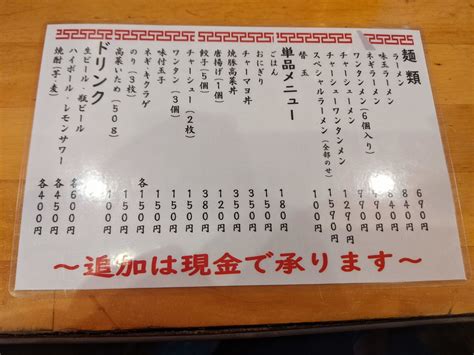 麺類
ラーメン 690円
味玉ラーメン 840円
ネギラーメン 840円
ワンタンメン(6個入り)
チャーシューメン
チャーシューワンタンメン 1290円
スペシャルラーメン(全部のせ) 1590円
替玉
単品メニュー
ごはん 180円
おにぎり 150円
チャーマヨ丼
焼豚高菜丼 350円
唐揚げ(1個) 120円
餃子(5個) 380円
チャーシュー(2枚)
ワンタン(3個) 150円
味付玉子 150円
ネギ・キクラゲ 各150円
のり(3枚)
高菜いため(50g) 100円
ドリンク
生ビール・瓶ビール 各600円
ハイボール・レモンサワー 各450円
焼酎(芋・麦) 各400円
〜追加は現金で承ります〜